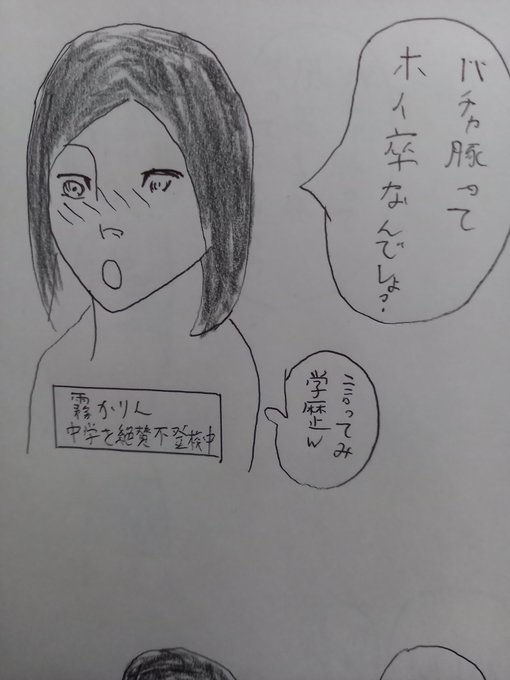 バチャ豚って
ホイ卒なんでしょ?
言ってみ
学歴w
霧かりん
中学を絶賛不登校中